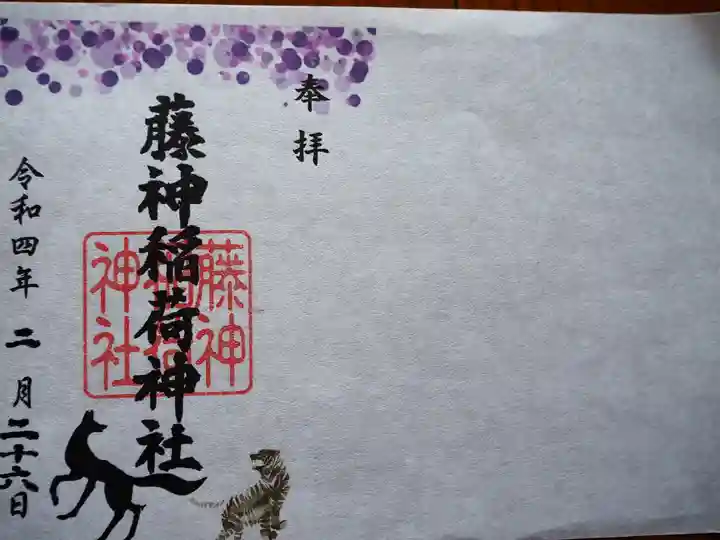 奉拝
藤神稲荷神社
藤神
稲荷
神社
令和四年二月二十六日